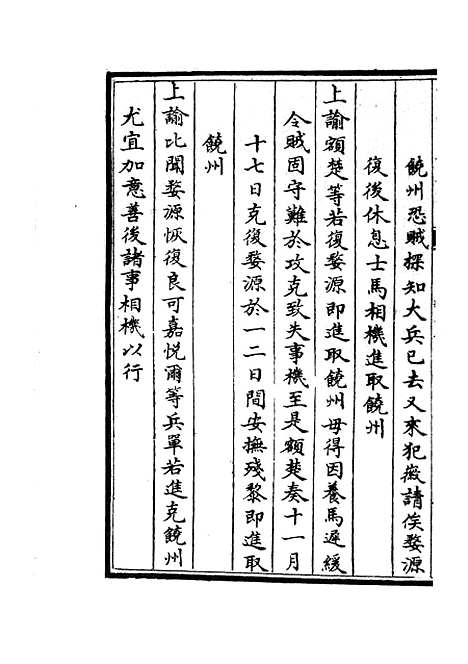 饒州恐賊探知大兵已去又來犯徽請俟婺源
復後休息士馬相機進取饒州
上諭額楚等若復婺源即進取饒州毋得因養馬遲緩
令賊固守難於攻克致失事機至是額楚奏十一月
十七日克復婺源於一二日間安撫殘黎即進取
饒州
上諭比聞婺源恢復良可嘉悅爾等兵單若進克饒州
尤宜加意善後諸事相機以行